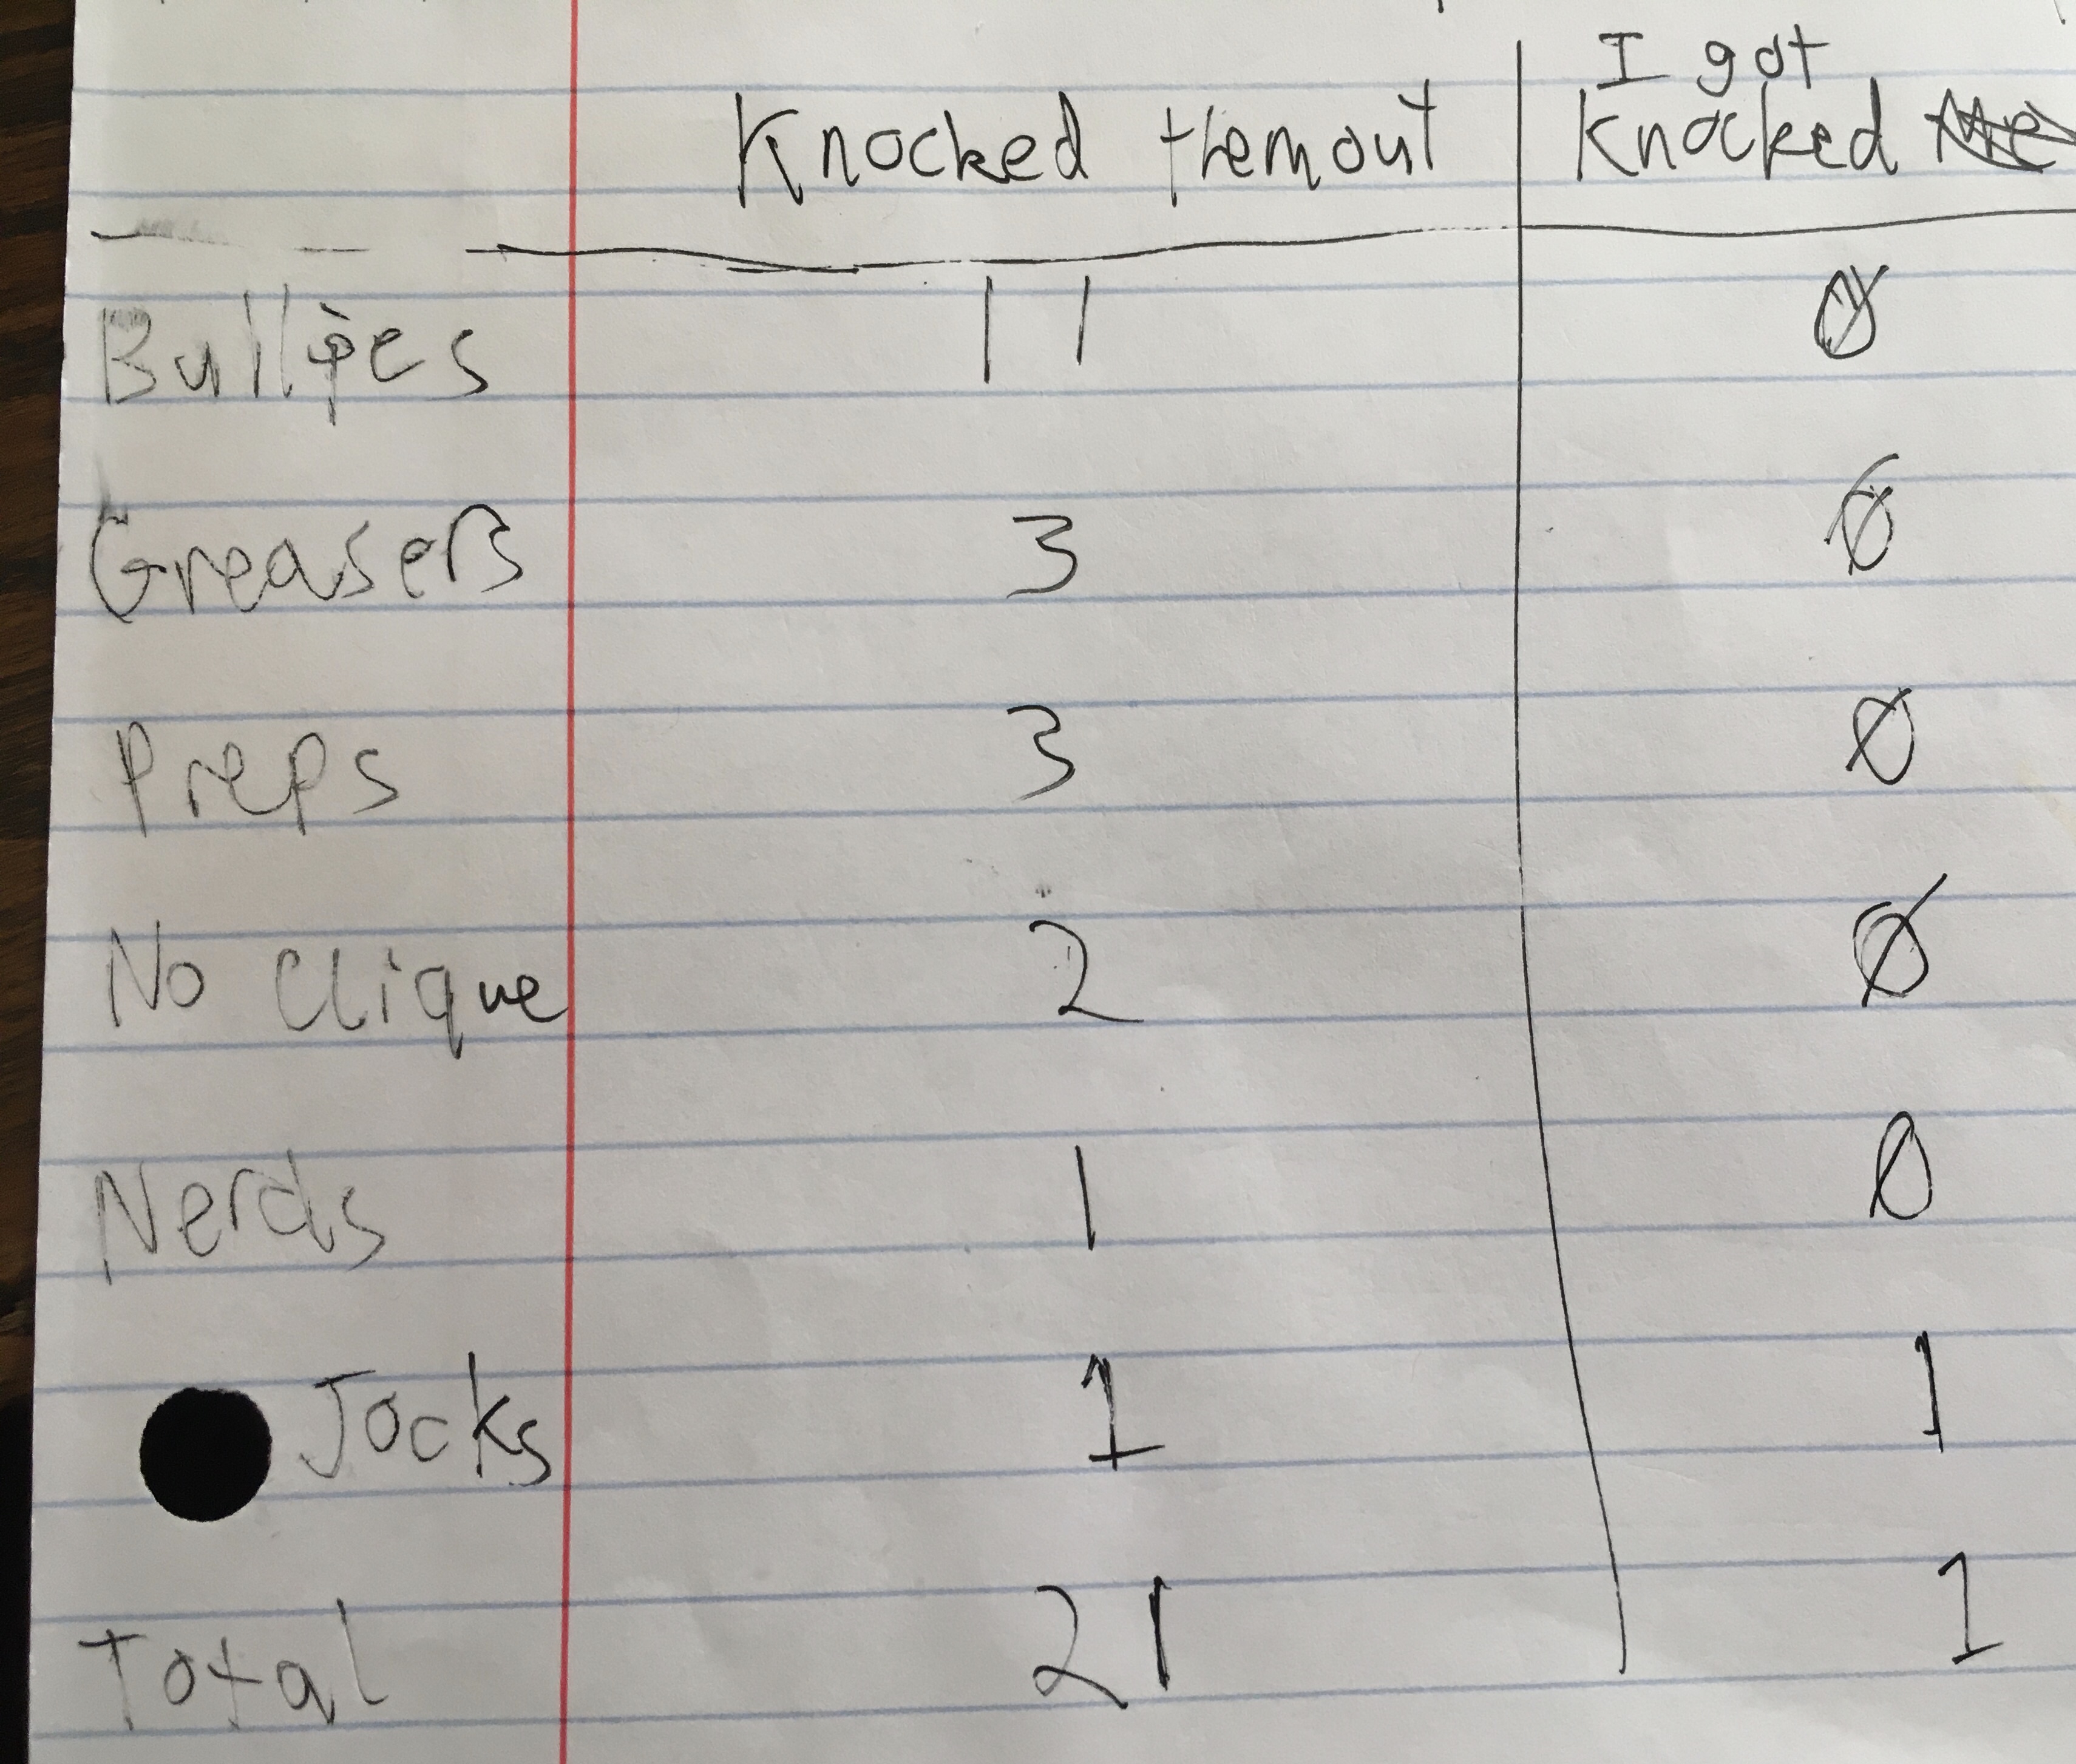 I got
Knocked them out Knocked
Bullies 11 0
Greasers 3 0
Preps 3 0
No Clique 2 0
Nerds 1 0
Jocks 1 1
Total 21 1